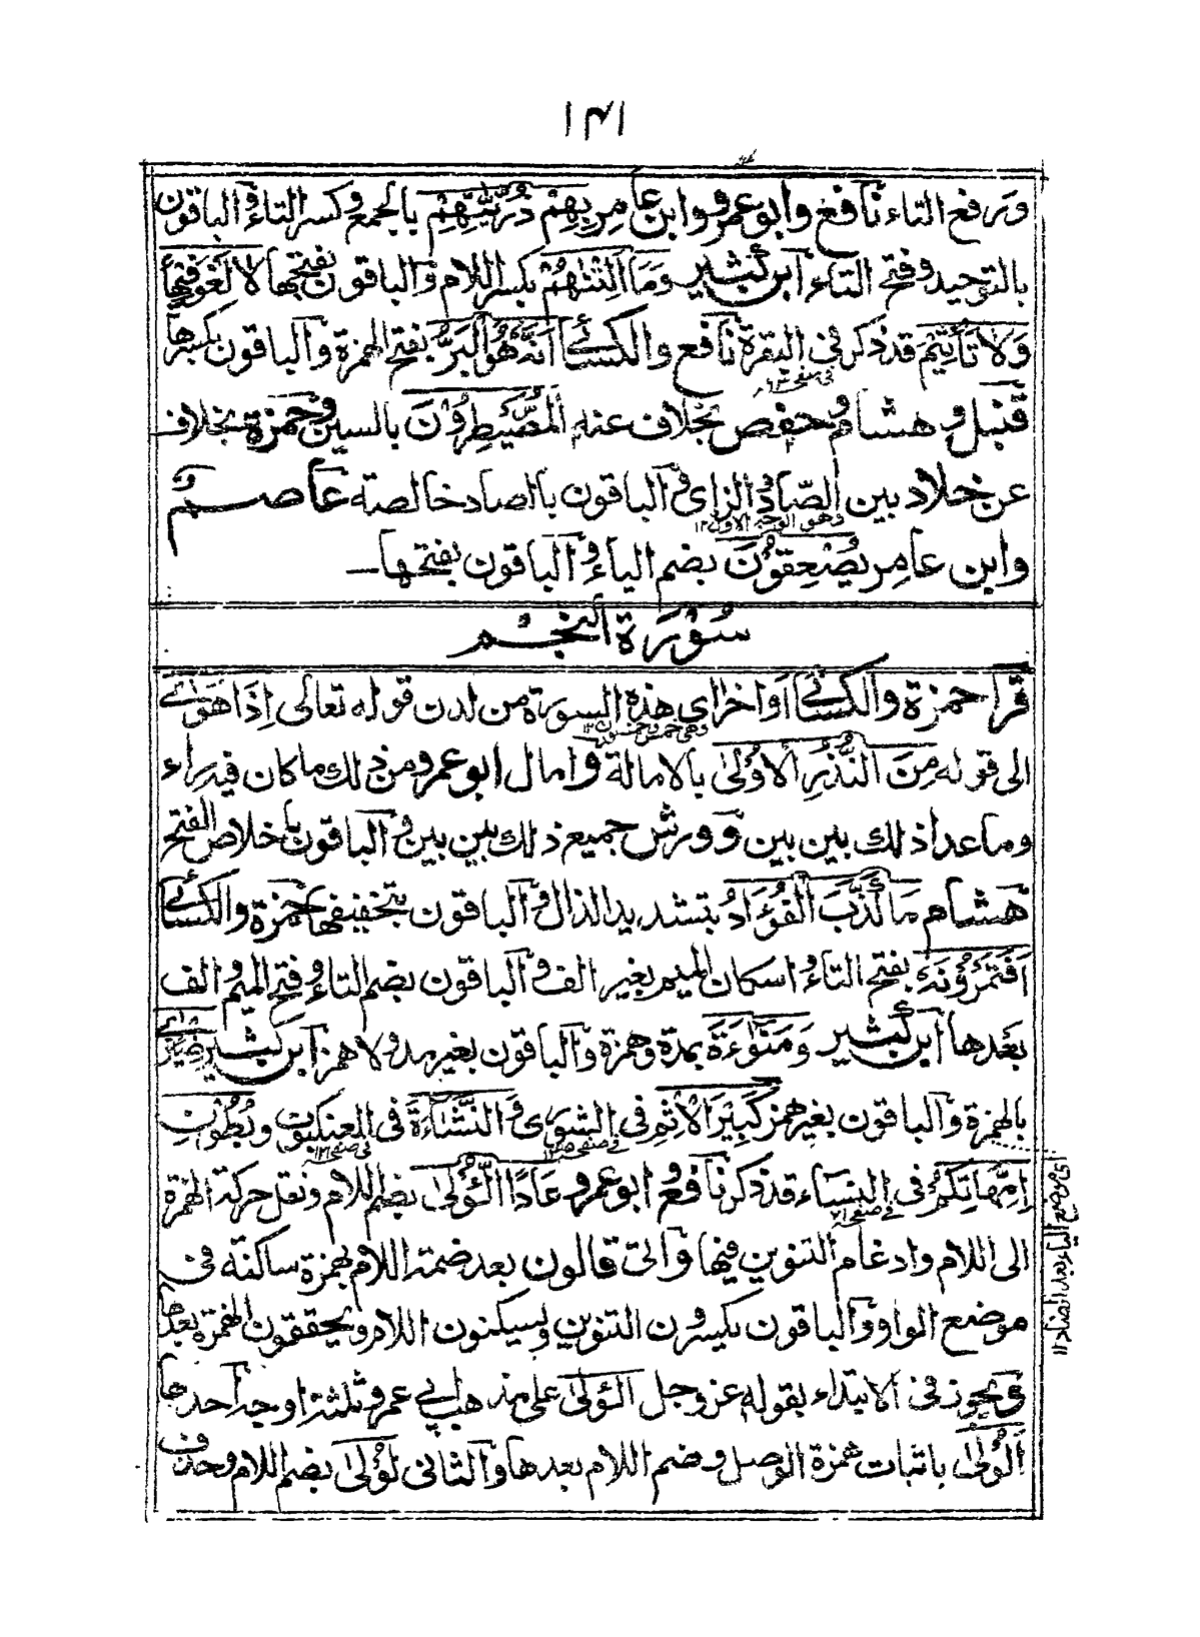 ۱۴۱
ورفع التاء نافع وابوعمرو وابن عامر بِهِمْ ذُرِّيّٰتِهِمْ بالجمع وكسر التاء والباقون
بالتوحيد وفتح التاء ابن كثير وَمَا اَلِتْنٰهُمْ بكسر اللام والباقون بفتحها لَا لَغْوَ فِيْهَا
وَلَا تَأْثِيْمَ قد ذكر فى البقرة نافع والكسائى اَنَّهٗ هُوَ الْبَرُّ بفتح الهمزة والباقون بكسرها
قنبل وهشام وحفص بخلاف عنه اَلْمُصَّيْطِرُوْنَ بالسين وحمزة بخلاف
عن خلاد بين الصاد والزاى والباقون بالصاد خالصته عاصم
وهو الوجه الاول ۱۲
وابن عامر يُصْعَقُوْنَ بضم الياء والباقون بفتحها
سُوْرَةُ النجم
قرا حمزة والكسائى اواخر اى هذه السورة من لدن قوله تعالى اِذَا هَوٰى
الى قوله مِنَ النُّذُرِ الْاُوْلٰى بالامالة وامال ابوعمرو من ذلك ما كان فيه راء
وما عدا ذلك بين بين وورش جميع ذلك بين بين والباقون باخلاص الفتح
هشام مَا كَذَّبَ الْفُؤَادُ بتشديد الذال والباقون بتخفيفها حمزة والكسائى
اَفَتَمْرُوْنَهٗ بفتح التاء واسكان الميم بغير الف والباقون بضم التاء وفتح الميم والف
بعدها ابن كثير وَمَنٰوءَةَ بمدة وهمزة والباقون بغير مد ولا همز ابن كثير ضِئْزٰى
بالهمزة والباقون بغير همز كَبِيْرَ الْاِثْمِ فى الشورى وَالنَّشْاَةَ فى العنكبوت وبُطُوْنِ
اِمَّهَاتِكُمْ فى النساء قد ذكر نافع وابوعمرو عَادًا الُّوْلٰى بضم اللام ونقل حركة الهمزة
الى اللام وادغام التنوين فيها واتى قالون بعد ضمة اللام بهمزة ساكنه فى
موضع الواو والباقون يكسرون التنوين ويسكنون اللام ويحققون الهمزة بعدها
ويجوز فى الابتداء بقوله عز وجل الُوْلٰى على مذهب ابى عمرو ثلثة اوجه احدها
اَلُوْلٰى باثبات همزة الوصل وضم اللام بعدها والثانى لُوْلٰى بضم اللام وحذف